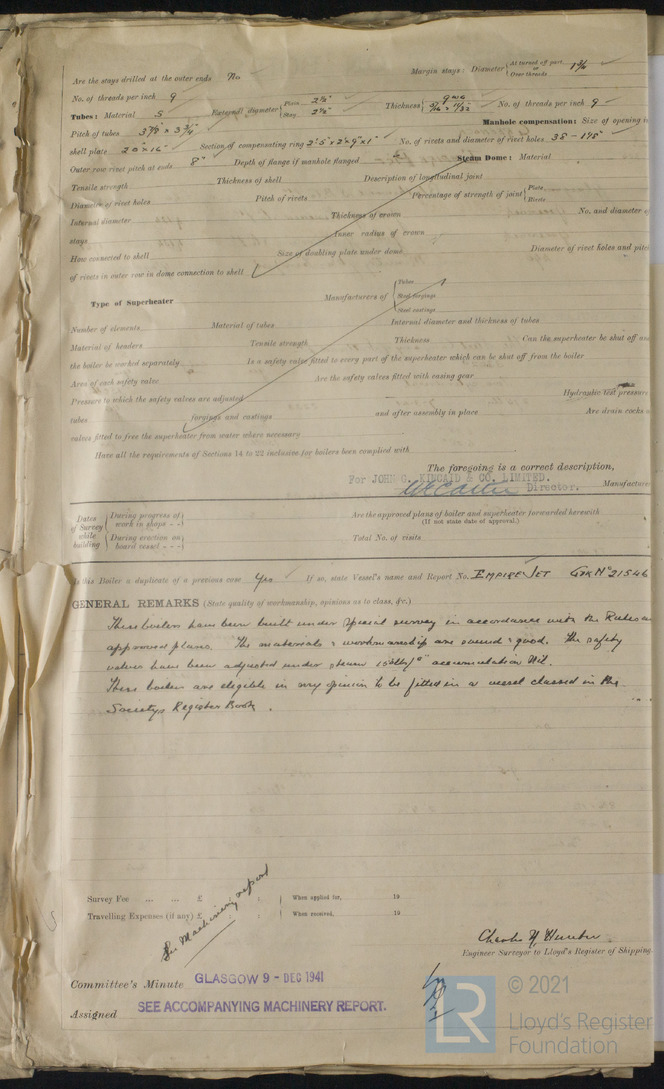 Are the stays drilled at the outer ends No Margin stays: Diameter { At turned off part, or Over threads 1 3/4
No. of threads per inch 9
Tubes: Material S External diameter { Plain 2½" Stay 2½" Thickness { No. of threads per inch 9
Pitch of tubes 3½" x 3¾" Manhole compensation: Size of opening in
shell plate 20" x 16" Section of compensating ring 2'5" x 2'9" x 1" No. of rivets and diameter of rivet holes 38 -
Outer row rivet pitch at ends 8" Depth of flange if manhole flanged Steam Dome: Material
Tensile strength Thickness of shell Description of longitudinal joint
Diameter of rivet holes Pitch of rivets Percentage of strength of joint { Plate Rivets
Internal diameter Thickness of crown No. and diameter of
stays Inner radius of crown
How connected to shell Size of doubling plate under dome Diameter of rivet holes and pitch
of rivets in outer row in dome connection to shell
Type of Superheater Manufacturers of { Tubes Steel forgings Steel castings
Number of elements Material of tubes Internal diameter and thickness of tubes
Material of headers Tensile strength Thickness Can the superheater be shut off and
the boiler be worked separately Is a safety valve fitted to every part of the superheater which can be shut off from the boiler
Area of each safety valve Are the safety valves fitted with easing gear
Pressure to which the safety valves are adjusted Hydraulic test pressure
tubes forgings and castings and after assembly in place Are drain cocks or
valves fitted to free the superheater from water where necessary
Have all the requirements of Sections 14 to 22 inclusive for boilers been complied with
The foregoing is a correct description,
For JOHN G. KINCAID & CO. LIMITED.
Director. Manufacturer
Dates of Survey while building { During progress of work in shops - - During erection on board vessel - - -
Are the approved plans of boiler and superheater forwarded herewith
(If not state date of approval.)
Total No. of visits
Is this Boiler a duplicate of a previous case Yes If so, state Vessel's name and Report No. EMPIRE JET GRK No 21546
GENERAL REMARKS (State quality of workmanship, opinions as to class, &c.)
These boilers have been built under special survey in accordance with the Rules and
approved plans. The materials & workmanship are sound & good. The safety
valves have been adjusted under steam accumulation Nil.
These boilers are eligible in my opinion to be fitted in a vessel classed in the
Societys Register Book.
Survey Fee ... ... £ : : When applied for, 19
Travelling Expenses (if any) £ : : When received, 19
See Machinery report
Charles Hunter
Engineer Surveyor to Lloyd's Register of Shipping.
Committee's Minute GLASGOW 9 - DEC 1941
Assigned SEE ACCOMPANYING MACHINERY REPORT.
LR © 2021
Lloyd's Register
Foundation